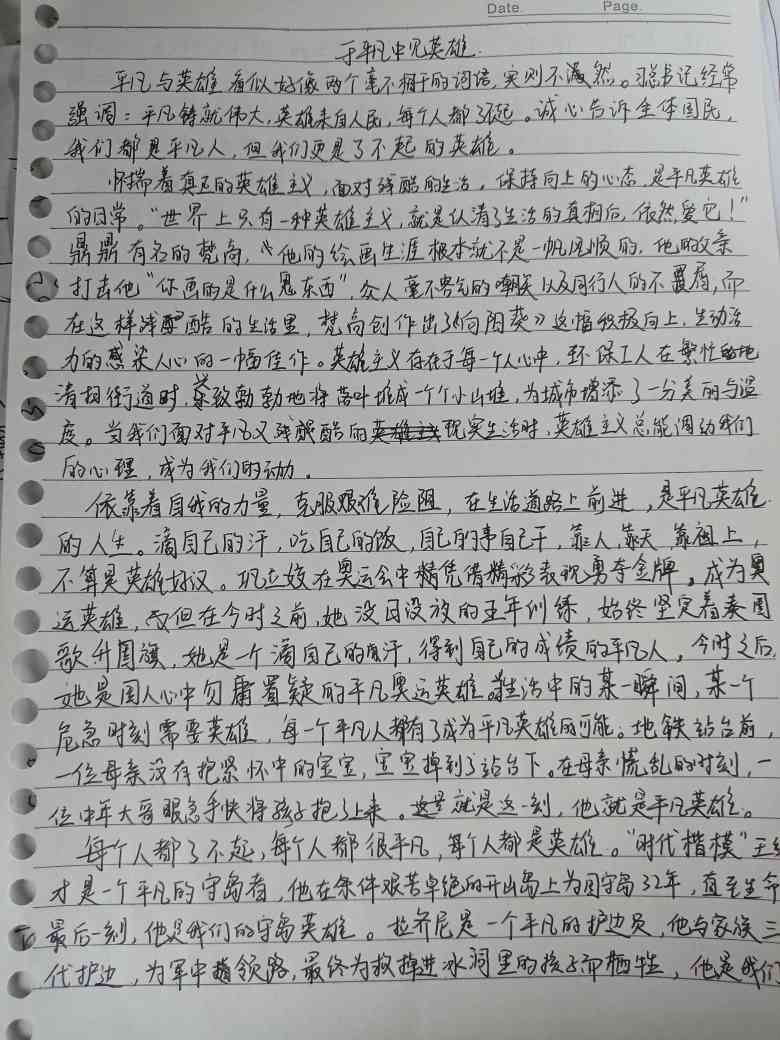 Date.    Page.
于平凡中见英雄.
平凡与英雄看似好像两个毫不相干的词语,实则不然。习总书记经常
强调:平凡铸就伟大,英雄来自人民,每个人都了不起。诚心告诉全体国民,
我们都是平凡人,但我们更是了不起的英雄。
怀揣着真正的英雄主义,面对残酷的生活,保持向上的心态,是平凡英雄
的日常。“世界上只有一种英雄主义,就是认清了生活的真相后,依然爱它!”
鼎鼎有名的梵高,他的绘画生涯根本就不是一帆风顺的,他的父亲
打击他“你画的是什么鬼东西”,众人毫不客气的嘲笑以及同行人的不看,而
在这样残酷的生活里,梵高创作出了《向阳葵》这幅积极向上,生动活
力的感染人心的一幅佳作。英雄主义存在于每一个人心中,环保工人在繁忙的地
清扫街道时,兴致勃勃地将落叶堆成一个个小山堆,为城市增添了一分美丽与温
度。当我们面对平凡又残酷的现实生活时,英雄主义总能调动我们
的心理,成为我们的动力。
依靠着自我的力量,克服艰难险阻,在生活道路上前进,是平凡英雄
的人生。滴自己的汗,吃自己的饭,自己的事自己干,靠人,靠天,靠祖上,
不算是英雄好汉。巩立姣在奥运会中凭借精彩表现勇夺金牌,成为奥
运英雄,但在今时之前,她没日没放的五年训练,始终坚定着奏国
歌升国旗,她是一个滴自己的汗,得到自己的成绩的平凡人。今时之后,
她是国人心中勿庸置疑的平凡奥运英雄。生活中的某一瞬间,某一个
危急时刻需要英雄,每一个平凡人都有了成为平凡英雄的可能。地铁站台前,
一位母亲没有抱紧怀中的宝宝,宝宝掉到了站台下。在母亲慌乱的时刻,一
位中年大哥眼急手快将孩子抱了上来。就是这一刻,他就是平凡英雄。
每个人都了不起,每个人都很平凡,每个人都是英雄。“时代楷模”王继
才是一个平凡的守岛者,他在条件艰苦卓绝的开山岛上为国守岛32年,直至生命
最后一刻,他是我们的守岛英雄。拉齐尼是一个平凡的护边员,他与家族三
代护边,为军中领路,最终为救掉进冰洞里的孩子而牺牲,他是我们